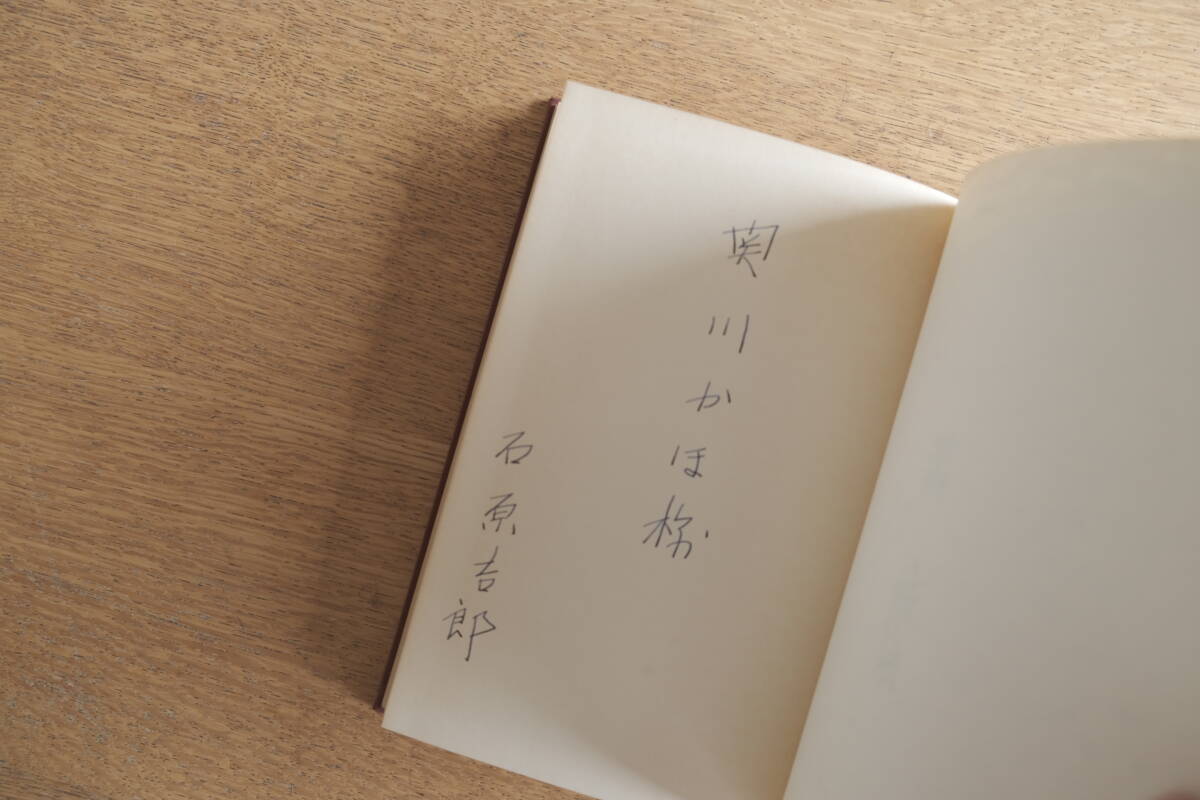 関川かほ様
石原吉郎